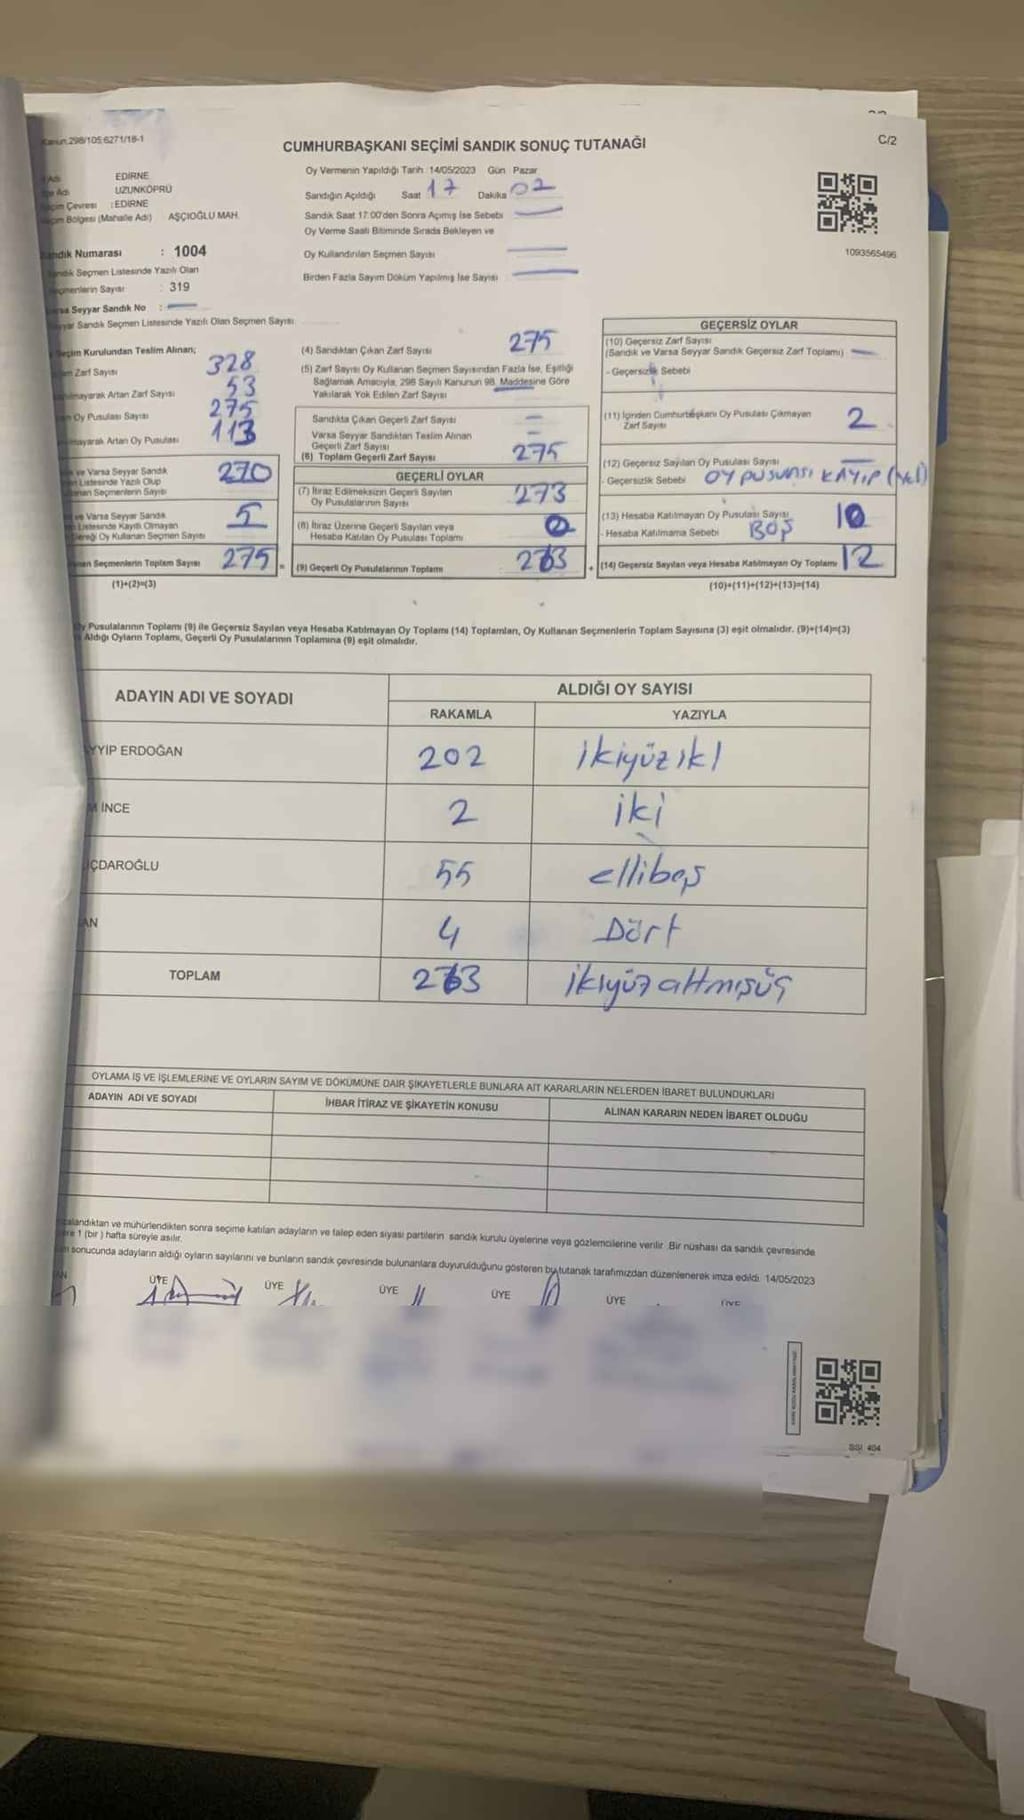 Kanun.298/105;6271/18-1
C/2
CUMHURBAŞKANI SEÇİMİ SANDIK SONUÇ TUTANAĞI
Adı EDİRNE
Adı UZUNKÖPRÜ
Çevresi :EDİRNE
Bölgesi (Mahalle Adı) AŞÇIOĞLU MAH.
Sandık Numarası : 1004
Sandık Seçmen Listesinde Yazılı Olan
Seçmenlerin Sayısı : 319
Varsa Seyyar Sandık No :
Seyyar Sandık Seçmen Listesinde Yazılı Olan Seçmen Sayısı
Oy Vermenin Yapıldığı Tarih :14/05/2023 Gün Pazar
Sandığın Açıldığı Saat 17 Dakika 02
Sandık Saat 17:00'den Sonra Açımış İse Sebebi
Oy Verme Saati Bitiminde Sırada Bekleyen ve
Oy Kullandırılan Seçmen Sayısı
Birden Fazla Sayım Döküm Yapılmış İse Sayısı
1093565496
Seçim Kurulundan Teslim Alınan;
Zarf Sayısı 328
Artan Zarf Sayısı 53
Oy Pusulası Sayısı 275
Artan Oy Pusulası 113
ve Varsa Seyyar Sandık
Listesinde Yazılı Olup
Seçmenlerin Sayısı 270
ve Varsa Seyyar Sandık
Listesinde Kayıtlı Olmayan
Gereği Oy Kullanan Seçmen Sayısı 5
Seçmenlerin Toplam Sayısı 275
(1)+(2)=(3)
(4) Sandıktan Çıkan Zarf Sayısı 275
(5) Zarf Sayısı Oy Kullanan Seçmen Sayısından Fazla İse, Eşitliği
Sağlamak Amacıyla, 298 Sayılı Kanunun 98. Maddesine Göre
Yakılarak Yok Edilen Zarf Sayısı
Sandıkta Çıkan Geçerli Zarf Sayısı
Varsa Seyyar Sandıktan Teslim Alınan
Geçerli Zarf Sayısı
(6) Toplam Geçerli Zarf Sayısı 275
GEÇERLİ OYLAR
(7) İtiraz Edilmeksizin Geçerli Sayılan
Oy Pusulalarının Sayısı 273
(8) İtiraz Üzerine Geçerli Sayılan veya
Hesaba Katılan Oy Pusulası Toplamı 0
(9) Geçerli Oy Pusulalarının Toplamı 263
GEÇERSİZ OYLAR
(10) Geçersiz Zarf Sayısı
(Sandık ve Varsa Seyyar Sandık Geçersiz Zarf Toplamı)
- Geçersizlik Sebebi
(11) İçinden Cumhurbaşkanı Oy Pusulası Çıkmayan
Zarf Sayısı 2
(12) Geçersiz Sayılan Oy Pusulası Sayısı
- Geçersizlik Sebebi OY PUSULASI KAYIP
(13) Hesaba Katılmayan Oy Pusulası Sayısı 10
- Hesaba Katılmama Sebebi BOŞ
(14) Geçersiz Sayılan veya Hesaba Katılmayan Oy Toplamı 12
(10)+(11)+(12)+(13)=(14)
Oy Pusulalarının Toplamı (9) ile Geçersiz Sayılan veya Hesaba Katılmayan Oy Toplamı (14) Toplamları, Oy Kullanan Seçmenlerin Toplam Sayısına (3) eşit olmalıdır. (9)+(14)=(3)
Aldığı Oyların Toplamı, Geçerli Oy Pusulalarının Toplamına (9) eşit olmalıdır.
ADAYIN ADI VE SOYADI
ALDIĞI OY SAYISI
RAKAMLA YAZIYLA
YYİP ERDOĞAN 202 ikiyüziki
M İNCE 2 iki
ÇDAROĞLU 55 ellibeş
AN 4 Dört
TOPLAM 263 ikiyüzaltmışüç
OYLAMA İŞ VE İŞLEMLERİNE VE OYLARIN SAYIM VE DÖKÜMÜNE DAİR ŞİKAYETLERLE BUNLARA AİT KARARLARIN NELERDEN İBARET BULUNDUKLARI
ADAYIN ADI VE SOYADI İHBAR İTİRAZ VE ŞİKAYETİN KONUSU ALINAN KARARIN NEDEN İBARET OLDUĞU
zalandıktan ve mühürlendikten sonra seçime katılan adayların ve talep eden siyasi partilerin sandık kurulu üyelerine veya gözlemcilerine verilir. Bir nüshası da sandık çevresinde
1 (bir ) hafta süreyle asılır.
sonucunda adayların aldığı oyların sayılarını ve bunların sandık çevresinde bulunanlara duyurulduğunu gösteren bu tutanak tarafımızdan düzenlenerek imza edildi. 14/05/2023
ÜYE ÜYE ÜYE ÜYE ÜYE ÜYE
SSI 404